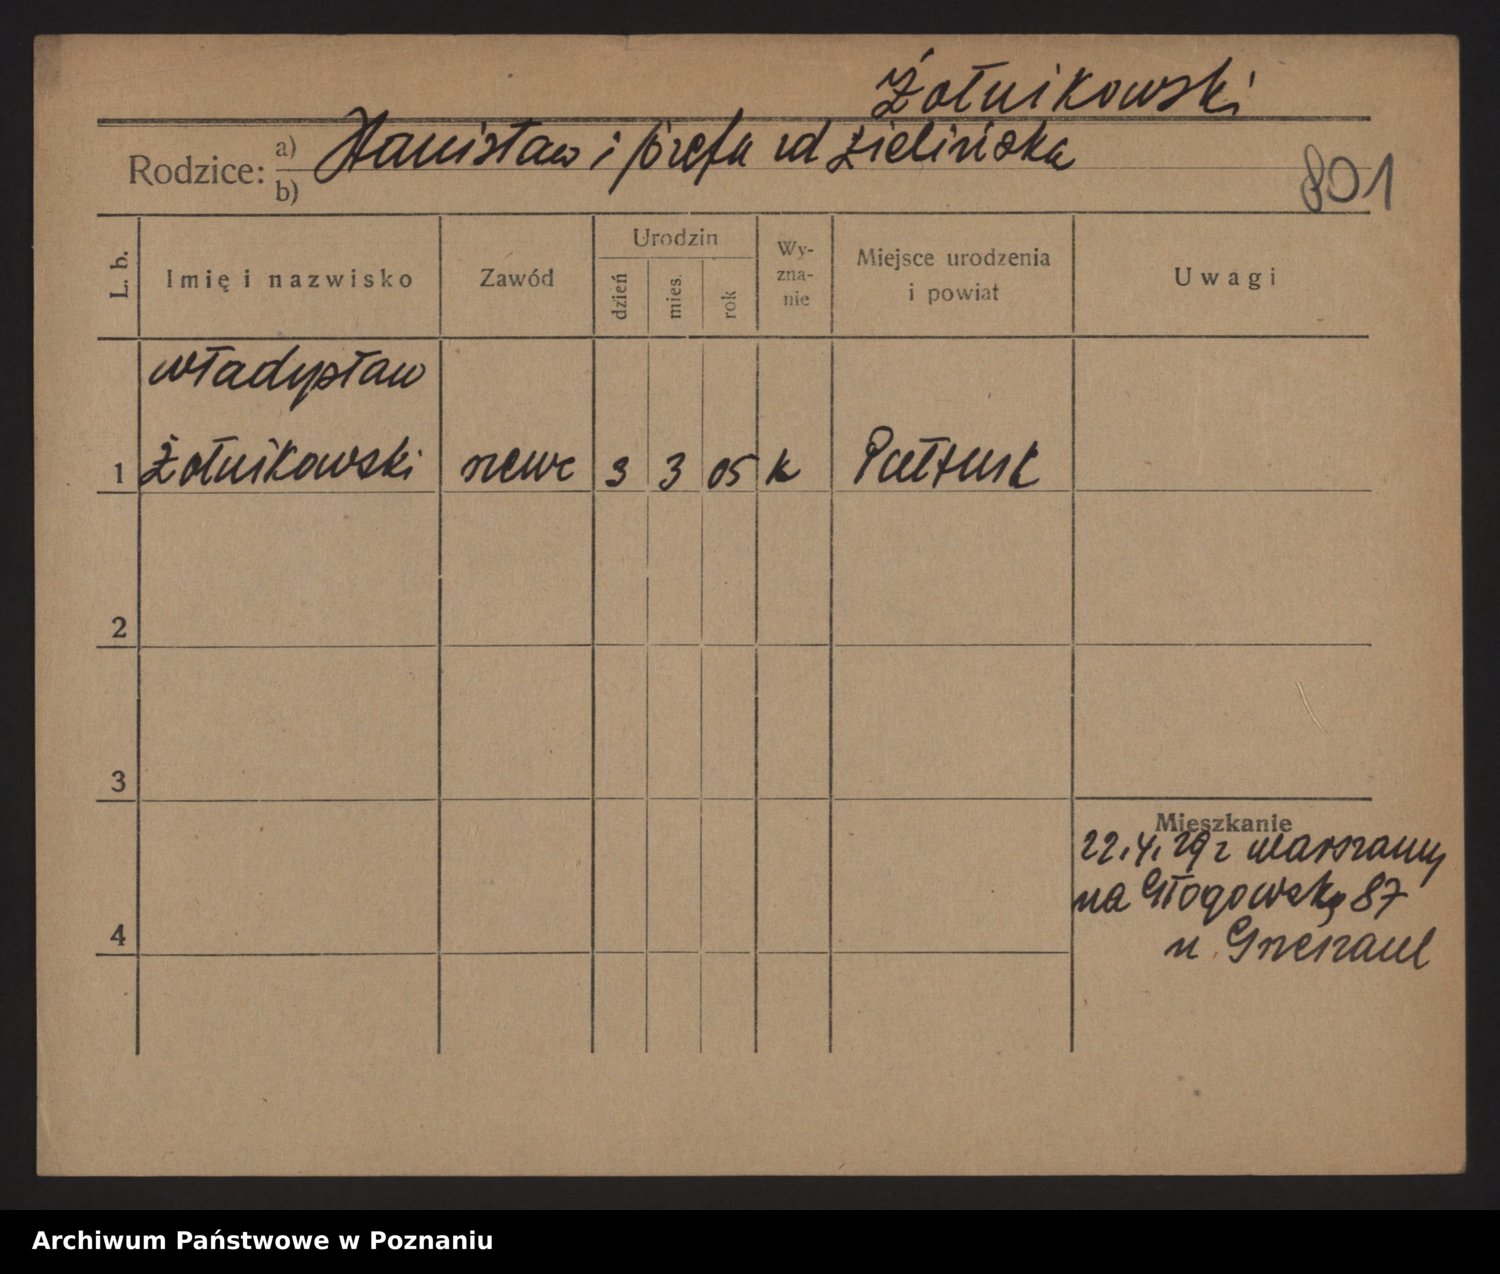 Żołnikowski
Rodzice: a) Stanisław i Józefa zd Zielińska
b)
801
L. b. Imię i nazwisko Zawód Urodzin dzień mies. rok Wy-zna-nie Miejsce urodzenia i powiat Uwagi
Władysław
1 Żołnikowski szewc 3 3 05 k Pułtusk
2
3
Mieszkanie
22.4.29 z Warszawy
na Głogowską 87
4
u
Archiwum Państwowe w Poznaniu